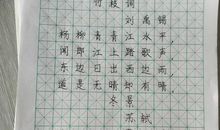 竹枝词
刘禹锡
杨柳青青江水平，
闻郎江上踏歌声。
东边日出西边雨，
道是无晴却有晴
冬景
苏轼